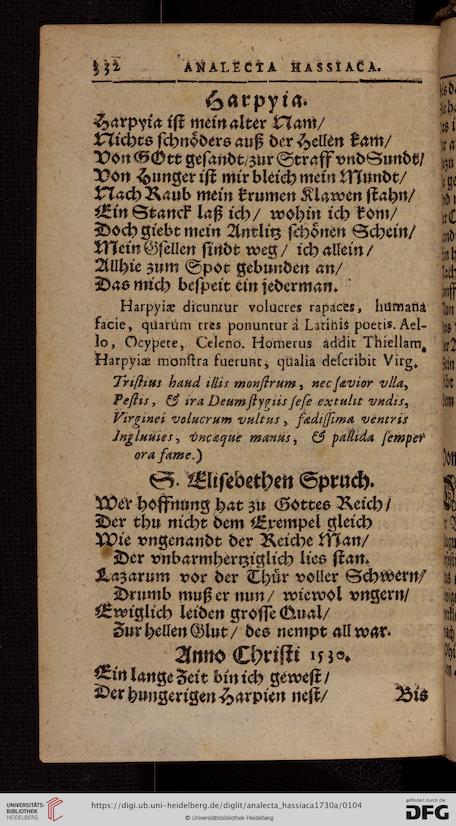 332 ANALECTA HASSIACA.
Harpyia.
Harpyia ist mein alter Nam/
Nichts schnöders auß der Hellen kam/
Von GOtt gesandt/zur Straff vnd Sundt/
Von Hunger ist mir bleich mein Mundt/
Nach Raub mein krumen Klawen stahn/
Ein Stanck laß ich/ wohin ich kom/
Doch giebt mein Antlitz schönen Schein/
Mein Gsellen sindt weg/ ich allein/
Allhie zum Spot gebunden an/
Das mich bespeit ein jederman.
Harpyiæ dicuntur volucres rapaces, humana
facie, quarum tres ponuntur à Latinis poetis. Ael-
lo, Ocypete, Celeno. Homerus addit Thiellam,
Harpyiæ monstra fuerunt, qualia describit Virg.
Tristius haud illis monstrum, nec sævior vlla,
Pestis, & ira Deum stygiis sese extulit vndis,
Virginei volucrum vultus, fœdissima ventris
Ingluuies, vncæque manus, & pallida semper
ora fame.)
S. Elisebethen Spruch.
Wer hoffnung hat zu Gottes Reich/
Der thu nicht dem Exempel gleich
Wie vngenandt der Reiche Man/
Der vnbarmhertziglich lies stan.
Lazarum vor der Thür voller Schwern/
Drumb muß er nun/ wiewol vngern/
Ewiglich leiden grosse Qual/
Zur hellen Glut/ des nempt all war.
Anno Christi 1530.
Ein lange Zeit bin ich gewest/
Der hungerigen Harpien nest/
Bis
UNIVERSITÄTS-
BIBLIOTHEK
HEIDELBERG
https://digi.ub.uni-heidelberg.de/diglit/analecta_hassiaca1730a/0104
© Universitätsbibliothek Heidelberg
gefördert durch die
DFG